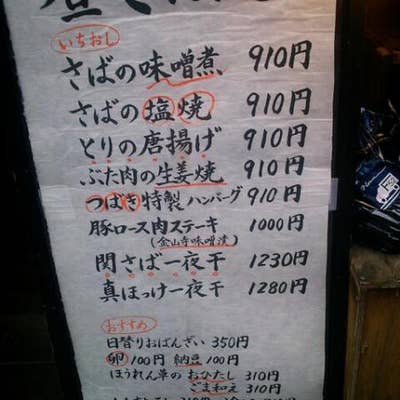 いちおし
さばの味噌煮 910円
さばの塩焼 910円
とりの唐揚げ 910円
ぶた肉の生姜焼 910円
つばき特製ハンバーグ 910円
豚ロース肉ステーキ 1000円
(金山寺味噌漬)
関さば一夜干 1230円
真ほっけ一夜干 1280円
おすすめ
日替りおばんざい 350円
卵100円 納豆100円
ほうれん草のおひたし 310円
ごま和え 310円